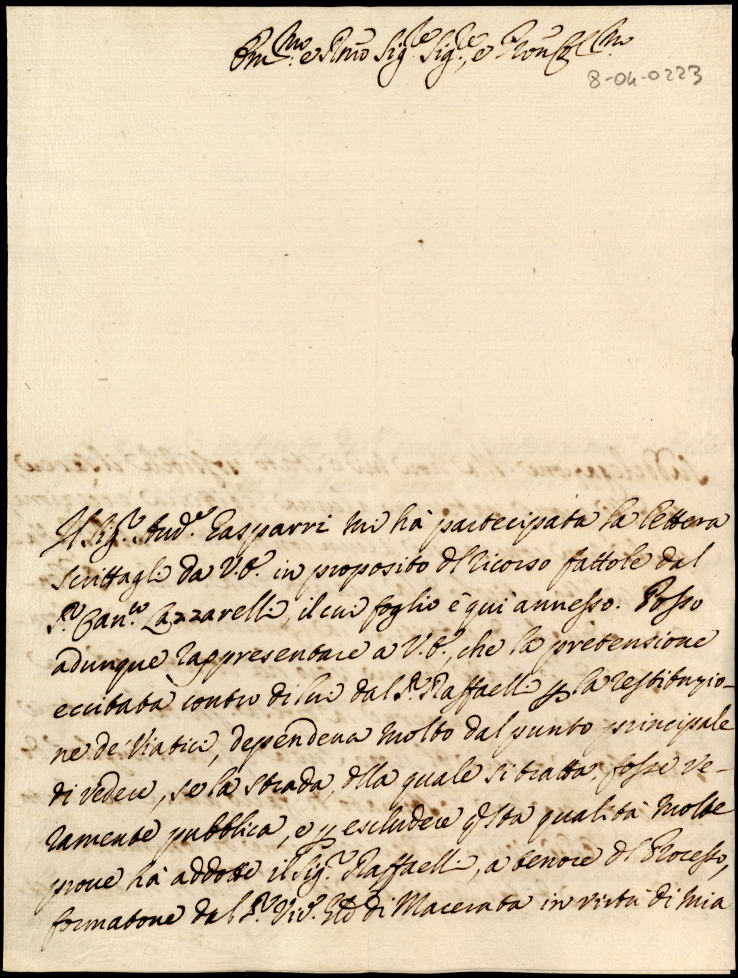 Em.mo e R.mo Sig.re Sig.re, e P.ron Col.mo
8-04-0223
Il Sig.r Aud.e Gasparri mi hà partecipata la lettera
scrittagli da V.E. in proposito d'l ricorso fattole dal
S.r Can.co Lazzarelli, il cui foglio è qui annesso. Posso
adunque rappresentare a V.E., che la pretensione
eccitata contro di lui dal S.r Raffaelli p la restituzio-
ne de' Viatici, dependeva molto dal punto principale
di vedere, se la strada, d'lla quale si tratta, fosse ve-
ramente pubblica, e p escludere q'sta qualità molte
prove hà addotte il Sig.r Raffaelli, a tenore d'l Processo,
formatone dal S.r Vic.o di Macerata in virtù di mia